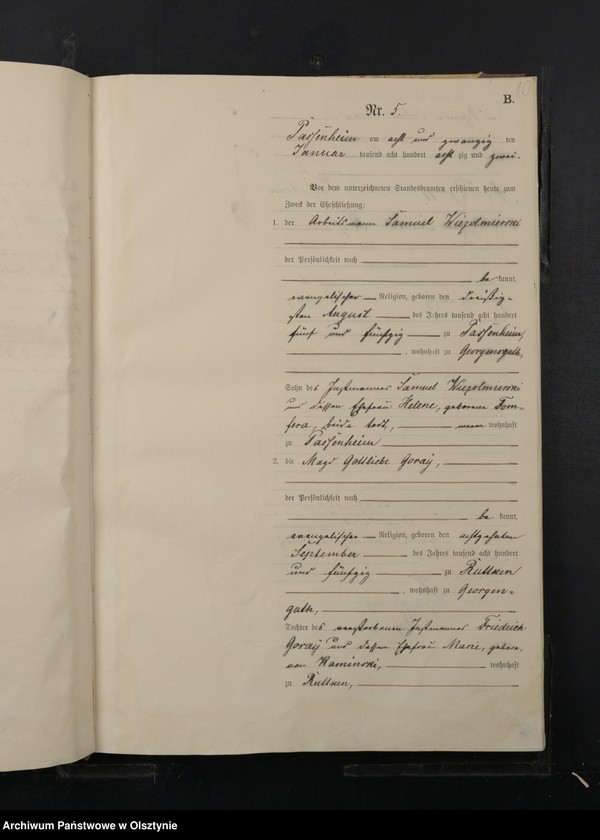 10
B.
Nr. 5.
Passenheim am acht und zwanzig ten
Januar tausend acht hundert acht zig und zwei.
Vor dem unterzeichneten Standesbeamten erschienen heute zum
Zweck der Eheschließung:
1. der Arbeitsmann Samuel Wiezolmierski
der Persönlichkeit nach
be kannt,
evangelischer Religion, geboren den dreißig-
sten August des Jahres tausend acht hundert
fünf und fünfzig zu Passenheim,
, wohnhaft zu Georgensguth,
Sohn des Instmannes Samuel Wiezolmierski
und dessen Ehefrau Helene, geborene Tom-
fera, beide todt, wohnhaft
zu Passenheim
2. die Magd Gottliebe Goray,
der Persönlichkeit nach
be kannt,
evangelischer Religion, geboren den achtzehnten
September des Jahres tausend acht hundert
und fünfzig zu Ruttken
, wohnhaft zu Georgen-
guth,
Tochter des verstorbenen Instmannes Friedrich
Goray und dessen Ehefrau Marie, gebore-
nen Kaminski, wohnhaft
zu Ruttken,
Archiwum Państwowe w Olsztynie